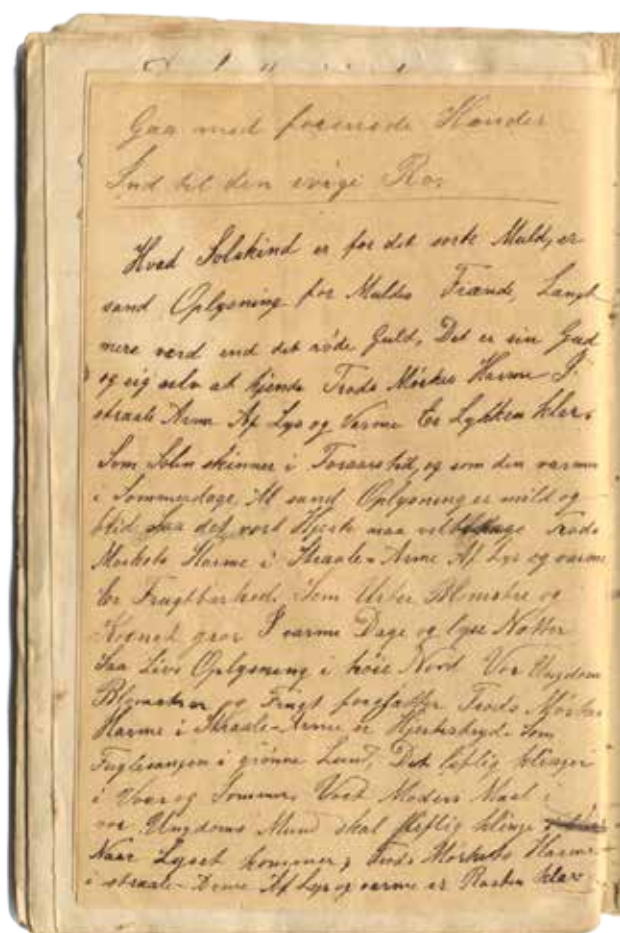 Gaa med forenede Hænder
Ind til den evige Ro.
Hvad Solskind er for det sorte Muld, er
sand Oplysning for Muldes Frænde, Langt
mere værd end det røde Guld, Det er sin Gud
og sig selv at kjende Trods Mørkes Harme I
straale Arme Af Lys og Varme Er Lykken klar.
Som Solen skinner i Foraars tid, og som den varmer
i Sommerdage, Al sand Oplysning er mild og
blid Saa det vort Hjerte maa vel Trods
Mørkets Harme i Straale-Arme Af Lys og varme
Er Frugtbarhed. Som Urter Blomstre og
Kornet gror I varme Dage og lyse Nætter
Saa Livs Oplysning i høie Nord Vor Ungdom
Blomster og Frugt forgjætter Trods Mørkes
Harme i Straale-Arme er Hjertefryd. Som
Fuglesangen i grønne Lund, Det liflig klinger
i Vaar og Sommer, Vort Moders Maal i
vor Ungdoms Mund skal liflig klinge
Naar Lyset kommer, Trods Mørkets Harme
i straale-Arme Af Lys og varme er Røsten klar